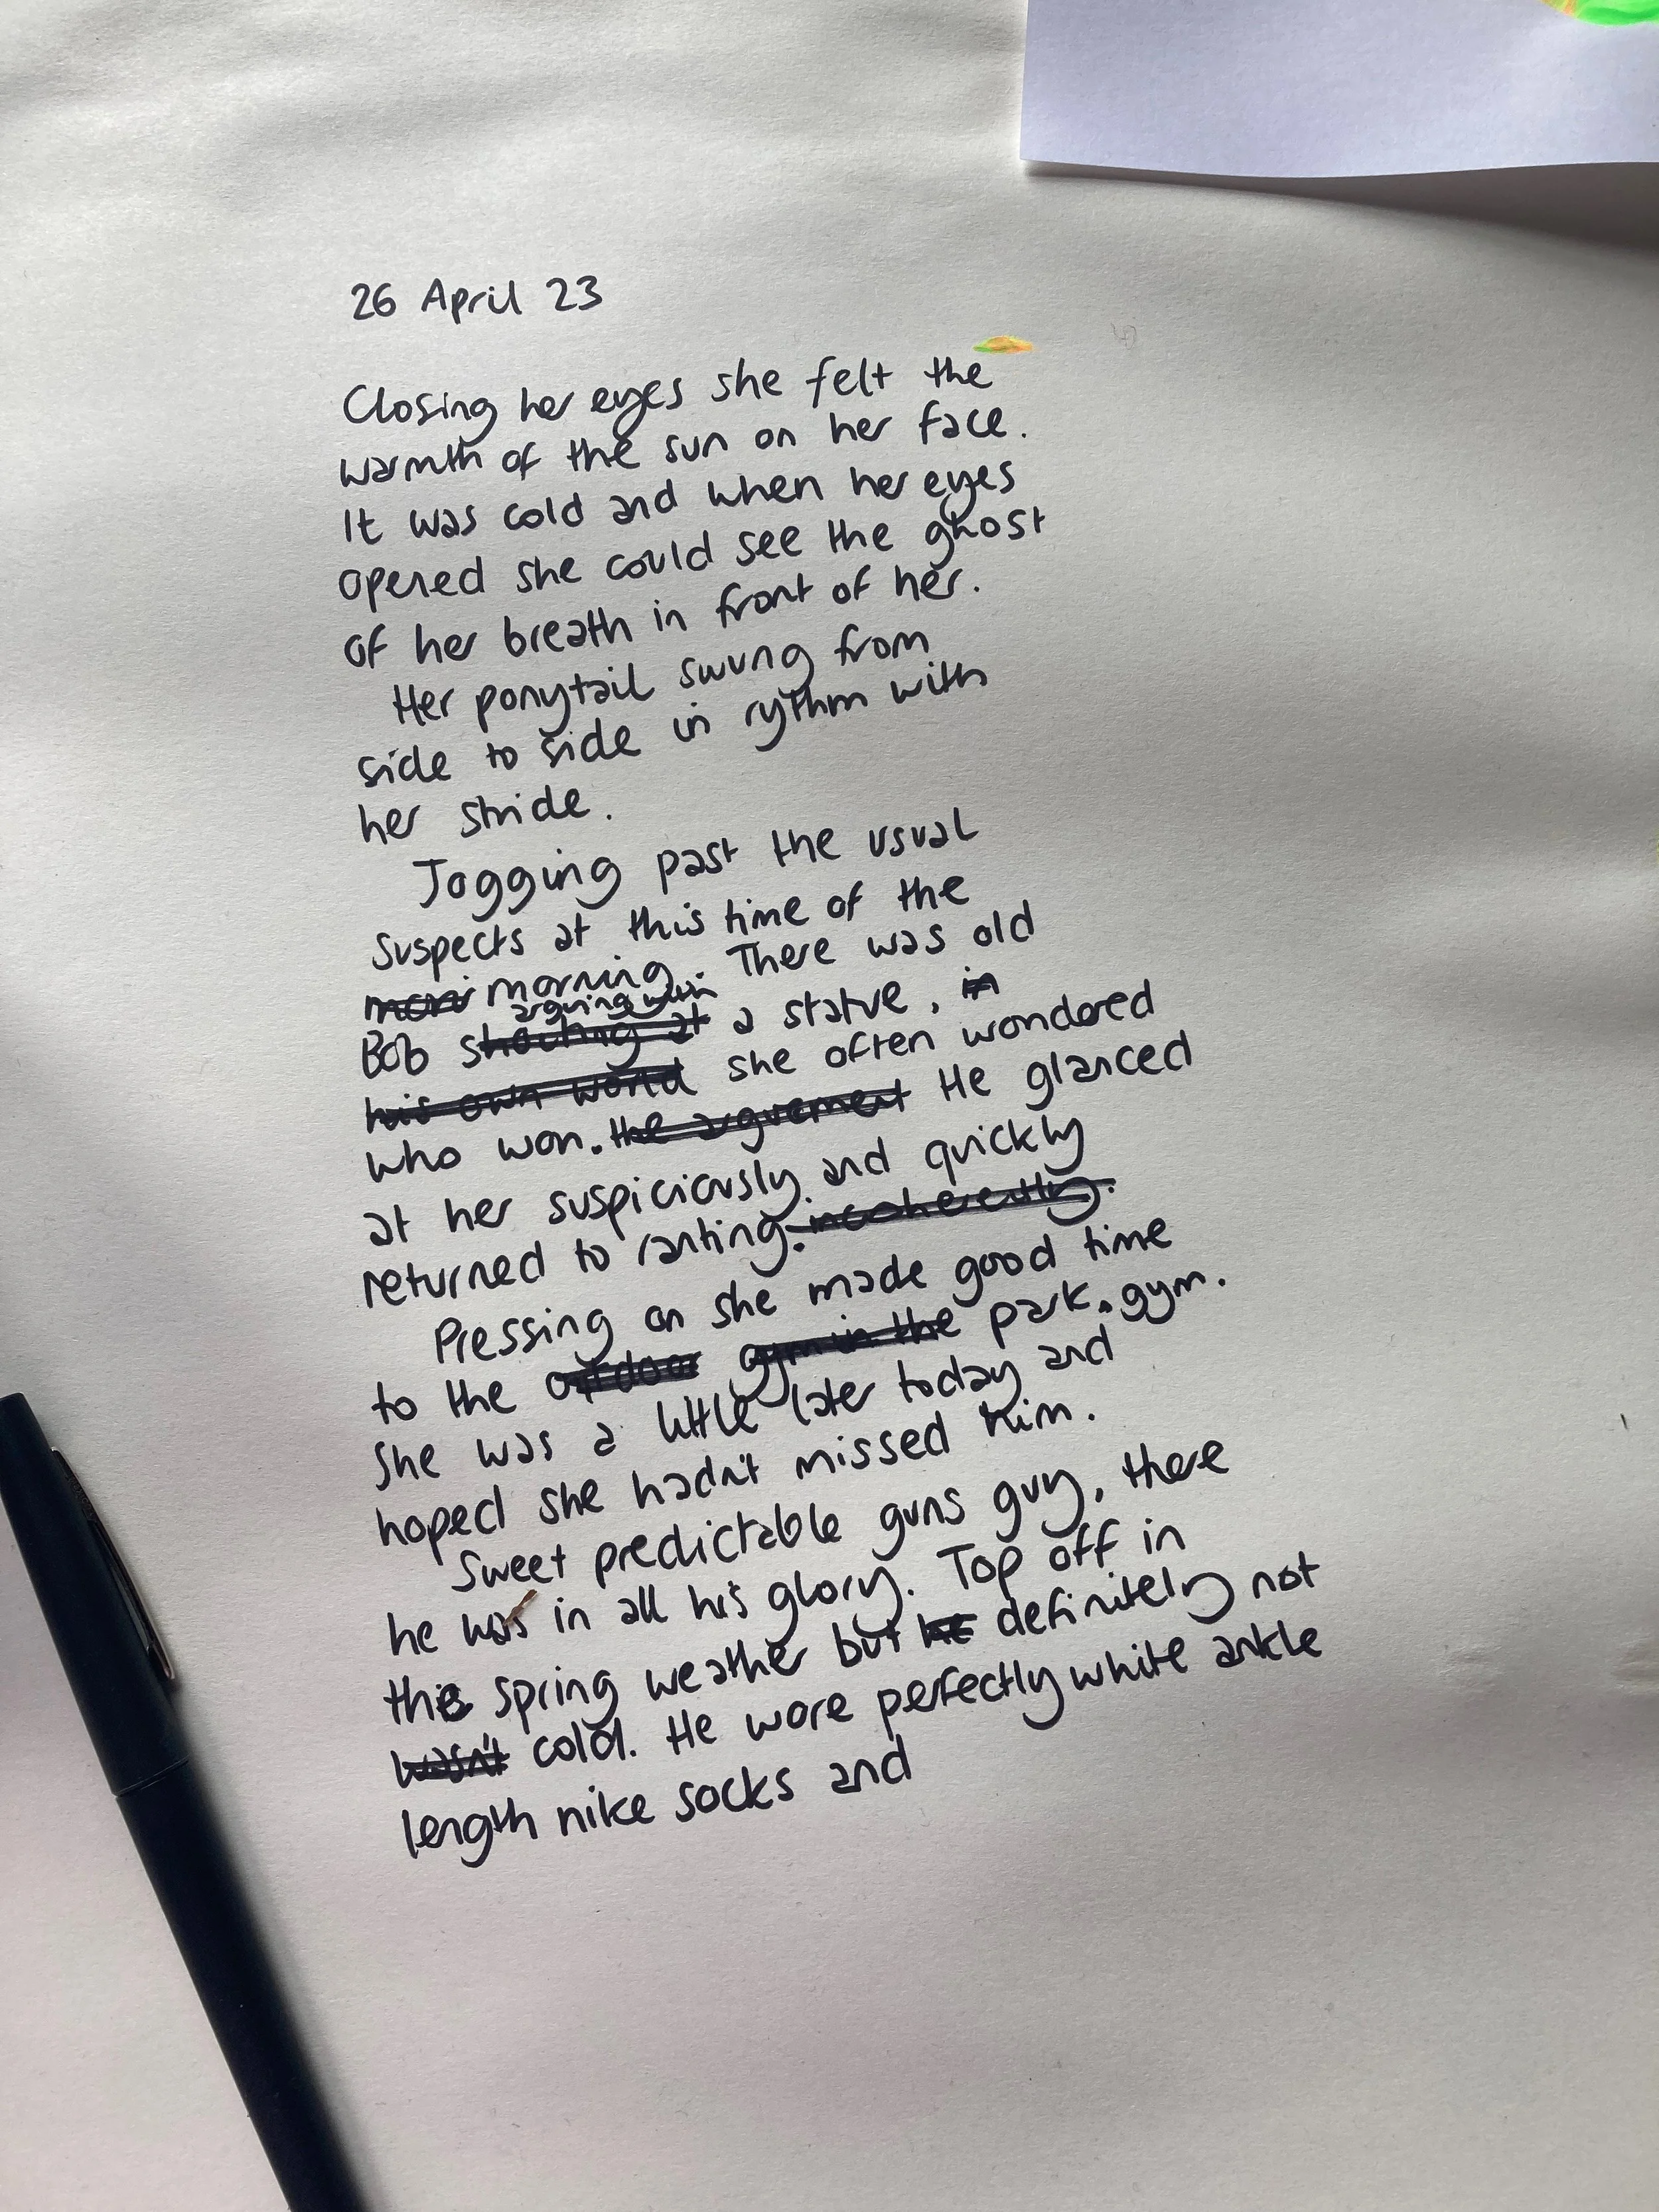 26 April 23
Closing her eyes she felt the
warmth of the sun on her face.
It was cold and when her eyes
opened she could see the ghost
of her breath in front of her.
Her ponytail swung from
side to side in rythm with
her stride.
Jogging past the usual
suspects at this time of the
morni morning. There was old
arguing with
Bob shouting at a statue, in
his own world she often wondered
who won. the arguement He glanced
at her suspiciously and quickly
returned to ranting. incoherently.
Pressing on she made good time
to the outdoor gym in the park gym.
She was a little later today and
hoped she hadn't missed him.
Sweet predictable guns guy, there
he was in all his glory. Top off in
this spring weather but he definitely not
wasn't cold. He wore perfectly white ankle
length nike socks and